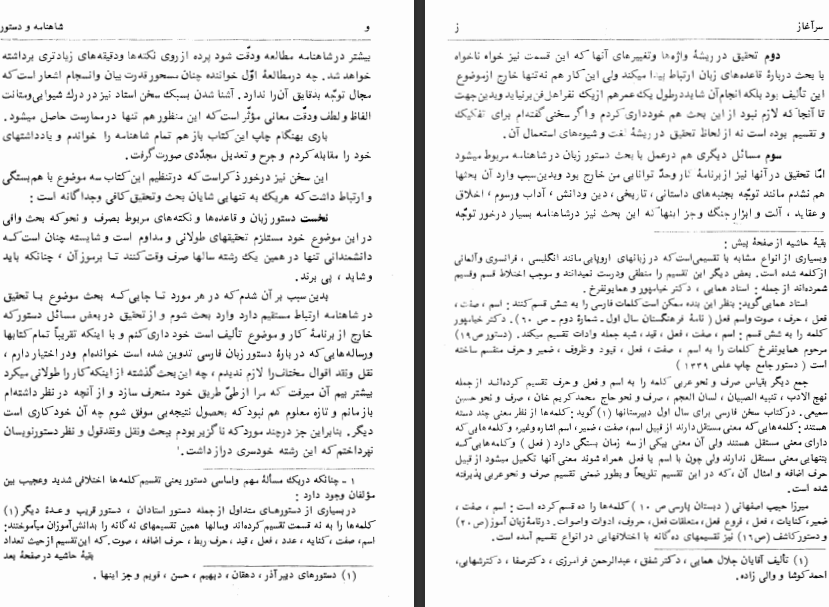 و
شاهنامه و دستور
بیشتر در شاهنامه مطالعه ودقّت شود پرده از روی نکته‌ها ودقیقه‌های زیادتری برداشته
خواهد شد. چه درمطالعهٔ اوّل خواننده چنان مسحور قدرت بیان وانسجام اشعار است که
مجال توجّه بدقایق آن را ندارد. آشنا شدن بسبك سخن استاد نیز در درك شیوایی ومتانت
الفاظ و لطف ودقّت معانی مؤثّر است که این منظور هم تنها درممارست حاصل میشود.
باری بهنگام چاپ این کتاب باز هم تمام شاهنامه را خواندم و یادداشتهای
خود را مقابله کردم و جرح و تعدیل مجدّدی صورت گرفت.
این سخن نیز درخور ذکر است که در تنظیم این کتاب سه موضوع با هم بستگی
و ارتباط داشت که هریك به تنهایی شایان بحث وتحقیق کافی وجداگانه است :
نخست دستور زبان و قاعده‌ها و نکته‌های مربوط بصرف و نحو که بحث وافی
در این موضوع خود مستلزم تحقیقهای طولانی و مداوم است و شایسته چنان است که
دانشمندانی تنها در همین یك رشته سالها صرف وقت کنند تا برموز آن ، چنانکه باید
وشاید ، پی برند.
بدین سبب بر آن شدم که در هر مورد تا جایی که بحث موضوع با تحقیق
در شاهنامه ارتباط مستقیم دارد وارد بحث شوم و از تحقیق در بعض مسائل دستور که
خارج از برنامهٔ کار و موضوع تألیف است خود داری کنم و با اینکه تقریباً تمام کتابها
و رساله‌هایی که در بارهٔ دستور زبان فارسی تدوین شده است خوانده‌ام ودر اختیار دارم ،
نقل ونقد اقوال مختلف را لازم ندیدم ، چه این بحث گذشته از اینکه کار را طولانی میکرد
بیشتر بیم آن میرفت که مرا از طیّ طریق خود منحرف سازد و از آنچه در نظر داشته‌ام
باز مانم و تازه معلوم هم نبود که بحصول نتیجه‌یی موفق شوم چه آن خود کاری است
دیگر. بنابراین جز در چند مورد که ناگزیر بودم ببحث ونقل ونقد قول و نظر دستورنویسان
نپرداختم که این رشته خودسری دراز داشت.۱
۱ ـ چنانکه دریك مسألهٔ مهم واساسی دستور یعنی تقسیم کلمه‌ها اختلافی شدید وعجیب بین
مؤلفان وجود دارد :
در بسیاری از دستورهای متداول از جمله دستور استادان ، دستور قریب و عدهٔ دیگر (۱)
کلمه‌ها را به نه قسمت تقسیم کرده‌اند وسالها همین تقسیمهای نه گانه را بدانش‌آموزان میآموختند:
اسم، صفت ، کنایه ، عدد ، فعل ، قید ، حرف ربط ، حرف اضافه ، صوت. که این تقسیم از حیث تعداد
بقیهٔ حاشیه در صفحهٔ بعد
(۱) دستورهای دبیر آذر ، دهقان ، دیهیم ، حسن ، قویم و جز اینها .
سرآغاز
ز
دوم تحقیق در ریشهٔ واژه‌ها وتغییرهای آنها که این قسمت نیز خواه ناخواه
با بحث دربارهٔ قاعده‌های زبان ارتباط پیدا میکند ولی این کار هم نه تنها خارج ازموضوع
این تألیف بود بلکه انجام آن شاید در طول یك عمر هم از یك نفر اهل فن بر نیاید وبدین جهت
تا آنجا که لازم نبود از این بحث هم خودداری کردم و اگر سخنی گفته‌ام برای تفکیك
و تقسیم بوده است نه از لحاظ تحقیق در ریشهٔ لغت و شیوه‌های استعمال آن.
سوم مسائل دیگری هم درعمل با بحث دستور زبان در شاهنامه مربوط میشود
امّا تحقیق در آنها نیز از برنامهٔ کار وحدّ توانایی من خارج بود وبدین‌سبب وارد آن بحثها
هم نشدم مانند توجّه بجنبه‌های داستانی ، تاریخی ، دین ودانش ، آداب ورسوم ، اخلاق
و عقاید ، آلت و ابزار جنگ و جز اینها که این بحث نیز در شاهنامه بسیار درخور توجّه
بقیهٔ حاشیه از صفحهٔ پیش :
وبسیاری از انواع مشابه با تقسیمی است که در زبانهای اروپایی مانند انگلیسی ، فرانسوی وآلمانی
از کلمه شده است. بعض دیگر این تقسیم را منطقی ودرست نمیدانند و موجب اختلاط قسم وقسیم
شمرده‌اند از جمله : استاد همایی ، دکتر خیامپور و همایونفرخ .
استاد همایی گوید: بنظر این بنده ممکن است کلمات فارسی را به شش قسم کنند : اسم ، صفت ،
فعل ، حرف ، صوت واسم فعل ( نامهٔ فرهنگستان سال اول ـ شمارهٔ دوم ـ ص ۶۰) . دکتر خیامپور
کلمه را به شش قسم : اسم ، صفت ، فعل ، قید ، شبه جمله وادات تقسیم میکند . (دستور ص ۱۹)
مرحوم همایونفرخ کلمات را به اسم ، صفت ، فعل ، قیود و ظروف ، ضمیر و حرف منقسم ساخته
است ( دستور جامع چاپ علمی ۱۳۳۹ )
جمع دیگر بقیاس صرف و نحو عربی کلمه را به اسم و فعل و حرف تقسیم کرده‌انـد از جمله
نهج الادب ، تنبیه الصبیان ، لسان العجم ، صرف و نحو حاج محمد کریم خان ، صرف و نحو حسن
سمیعی. در کتاب سخن فارسی برای سال اول دبیرستانها (۱) گوید : کلمه‌ها از نظر معنی چند دسته
هستند : کلمه‌هایی که معنی مستقل دارند از قبیل اسم، صفت ، ضمیر، اسم اشاره وغیره و کلمه‌هایی که
دارای معنی مستقل هستند ولی آن معنی بیکی از سه زمان بستگی دارد ( فعل ) و کلمه‌هایی که
بتنهایی معنی مستقل ندارند ولی چون با اسم یا فعل همراه شوند معنی آنها تکمیل میشود از قبیل
حرف اضافه و امثال آن ، که در این تقسیم تلویحاً و بطور ضمنی تقسیم صرف و نحو عربی پذیرفته
شده است
میرزا حبیب اصفهانی ( دبستان پارسی ص ۱۰ ) کلمه‌ها را ده قسم کرده است : اسم ، صفت ،
ضمیر، کنایات ، فعل ، فروع فعل ، متعلقات فعل ، حروف، ادوات واصوات. درنامهٔ زبان آموز (ص ۲۰)
و دستور کاشف (ص ۱۶) نیز تقسیمهای ده گانه با اختلافهایی در انواع تقسیم آمده است.
(۱) تألیف آقایان جلال همایی ، دکتر شفق ، عبدالرحمن فرامرزی ، دکتر صفا ، دکتر شهابی،
احمد کوشا و والی زاده.